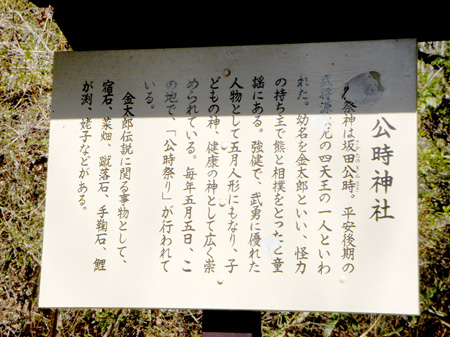 公時神社
祭神は坂田公時。平安後期の
武将源頼光の四天王の一人といわ
れた。幼名を金太郎といい、怪力
の持ち主で熊と相撲をとったと童
謡にある。強健で、武勇に優れた
人物として五月人形にもなり、子
どもの神、健康の神として広く崇
められている。毎年五月五日、こ
の地で、「公時祭り」が行われて
いる。
金太郎伝説に関る事物として、
宿石、菜畑、蹴落石、手鞠石、鯉
が渕、姥子などがある。